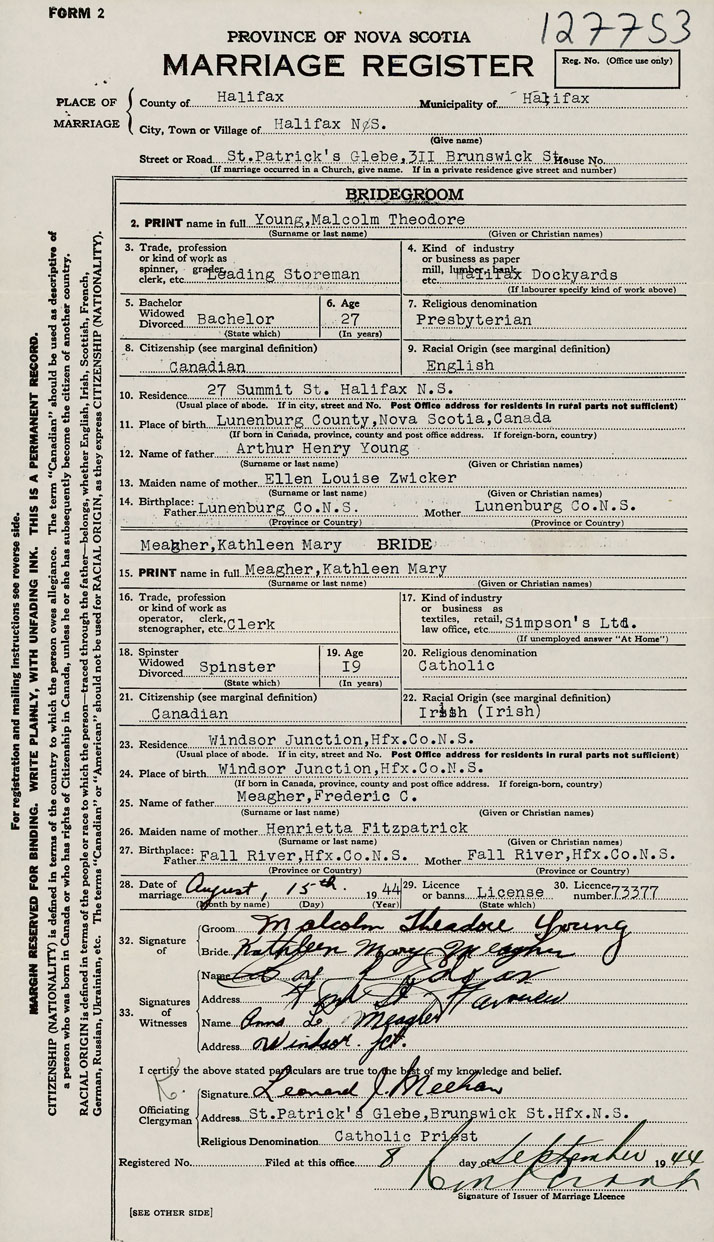 FORM 2
127753
PROVINCE OF NOVA SCOTIA
MARRIAGE REGISTER
Reg. No. (Office use only)
PLACE OF MARRIAGE
County of Halifax Municipality of Halifax
City, Town or Village of Halifax N/S.
(Give name)
Street or Road St.Patrick's Glebe,3II Brunswick St. House No.
(If marriage occurred in a Church, give name. If in a private residence give street and number)
BRIDEGROOM
2. PRINT name in full Young,Malcolm Theodore
(Surname or last name) (Given or Christian names)
3. Trade, profession or kind of work as spinner, grader, clerk, etc. Leading Storeman
4. Kind of industry or business as paper mill, lumber, bank, etc. Halifax Dockyards
(If labourer specify kind of work above)
5. Bachelor Widowed Divorced Bachelor
(State which)
6. Age 27
(In years)
7. Religious denomination Presbyterian
8. Citizenship (see marginal definition) Canadian
9. Racial Origin (see marginal definition) English
10. Residence 27 Summit St. Halifax N.S.
(Usual place of abode. If in city, street and No. Post Office address for residents in rural parts not sufficient)
11. Place of birth Lunenburg County,Nova Scotia,Canada
(If born in Canada, province, county and post office address. If foreign-born, country)
12. Name of father Arthur Henry Young
(Surname or last name) (Given or Christian names)
13. Maiden name of mother Ellen Louise Zwicker
(Surname or last name) (Given or Christian names)
14. Birthplace: Father Lunenburg Co.N.S. Mother Lunenburg Co.N.S.
(Province or Country) (Province or Country)
Meagher,Kathleen Mary BRIDE
15. PRINT name in full Meagher,Kathleen Mary
(Surname or last name) (Given or Christian names)
16. Trade, profession or kind of work as operator, clerk, stenographer, etc. Clerk
17. Kind of industry or business as textiles, retail, law office, etc. Simpson's Ltd.
(If unemployed answer "At Home")
18. Spinster Widowed Divorced Spinster
(State which)
19. Age I9
(In years)
20. Religious denomination Catholic
21. Citizenship (see marginal definition) Canadian
22. Racial Origin (see marginal definition) Irish (Irish)
23. Residence Windsor Junction,Hfx.Co.N.S.
(Usual place of abode. If in city, street and No. Post Office address for residents in rural parts not sufficient)
24. Place of birth Windsor Junction,Hfx.Co.N.S.
(If born in Canada, province, county and post office address. If foreign-born, country)
25. Name of father Meagher,Frederic C.
(Surname or last name) (Given or Christian names)
26. Maiden name of mother Henrietta Fitzpatrick
(Surname or last name) (Given or Christian names)
27. Birthplace: Father Fall River,Hfx.Co.N.S. Mother Fall River,Hfx.Co.N.S.
(Province or Country) (Province or Country)
28. Date of marriage August, 15th. 1944
(Month by name) (Day) (Year)
29. Licence or banns License
(State which)
30. Licence number 73377
32. Signature of
Groom Malcolm Theodore Young
Bride Kathleen Mary Meagher
33. Signatures of Witnesses
Name
Address
Name Anna L. Meagher
Address Windsor Jct.
I certify the above stated particulars are true to the best of my knowledge and belief.
Officiating Clergyman
Signature Leonard J. Meehan
Address St.Patrick's Glebe,Brunswick St.Hfx.N.S.
Religious Denomination Catholic Priest
Registered No. Filed at this office 8 day of September 1944
Signature of Issuer of Marriage Licence
[SEE OTHER SIDE]
For registration and mailing instructions see reverse side.
MARGIN RESERVED FOR BINDING. WRITE PLAINLY, WITH UNFADING INK. THIS IS A PERMANENT RECORD.
CITIZENSHIP (NATIONALITY) is defined in terms of the country to which the person owes allegiance. The term "Canadian" should be used as descriptive of
a person who was born in Canada or who has rights of Citizenship in Canada, unless he or she has subsequently become the citizen of another country.
RACIAL ORIGIN is defined in terms of the people or race to which the person—traced through the father—belongs, whether English, Irish, Scottish, French,
German, Russian, Ukrainian, etc. The terms "Canadian" or "American" should not be used for RACIAL ORIGIN, as they express CITIZENSHIP (NATIONALITY).